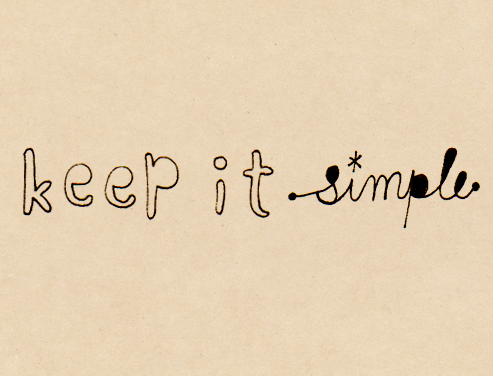 keep it simple